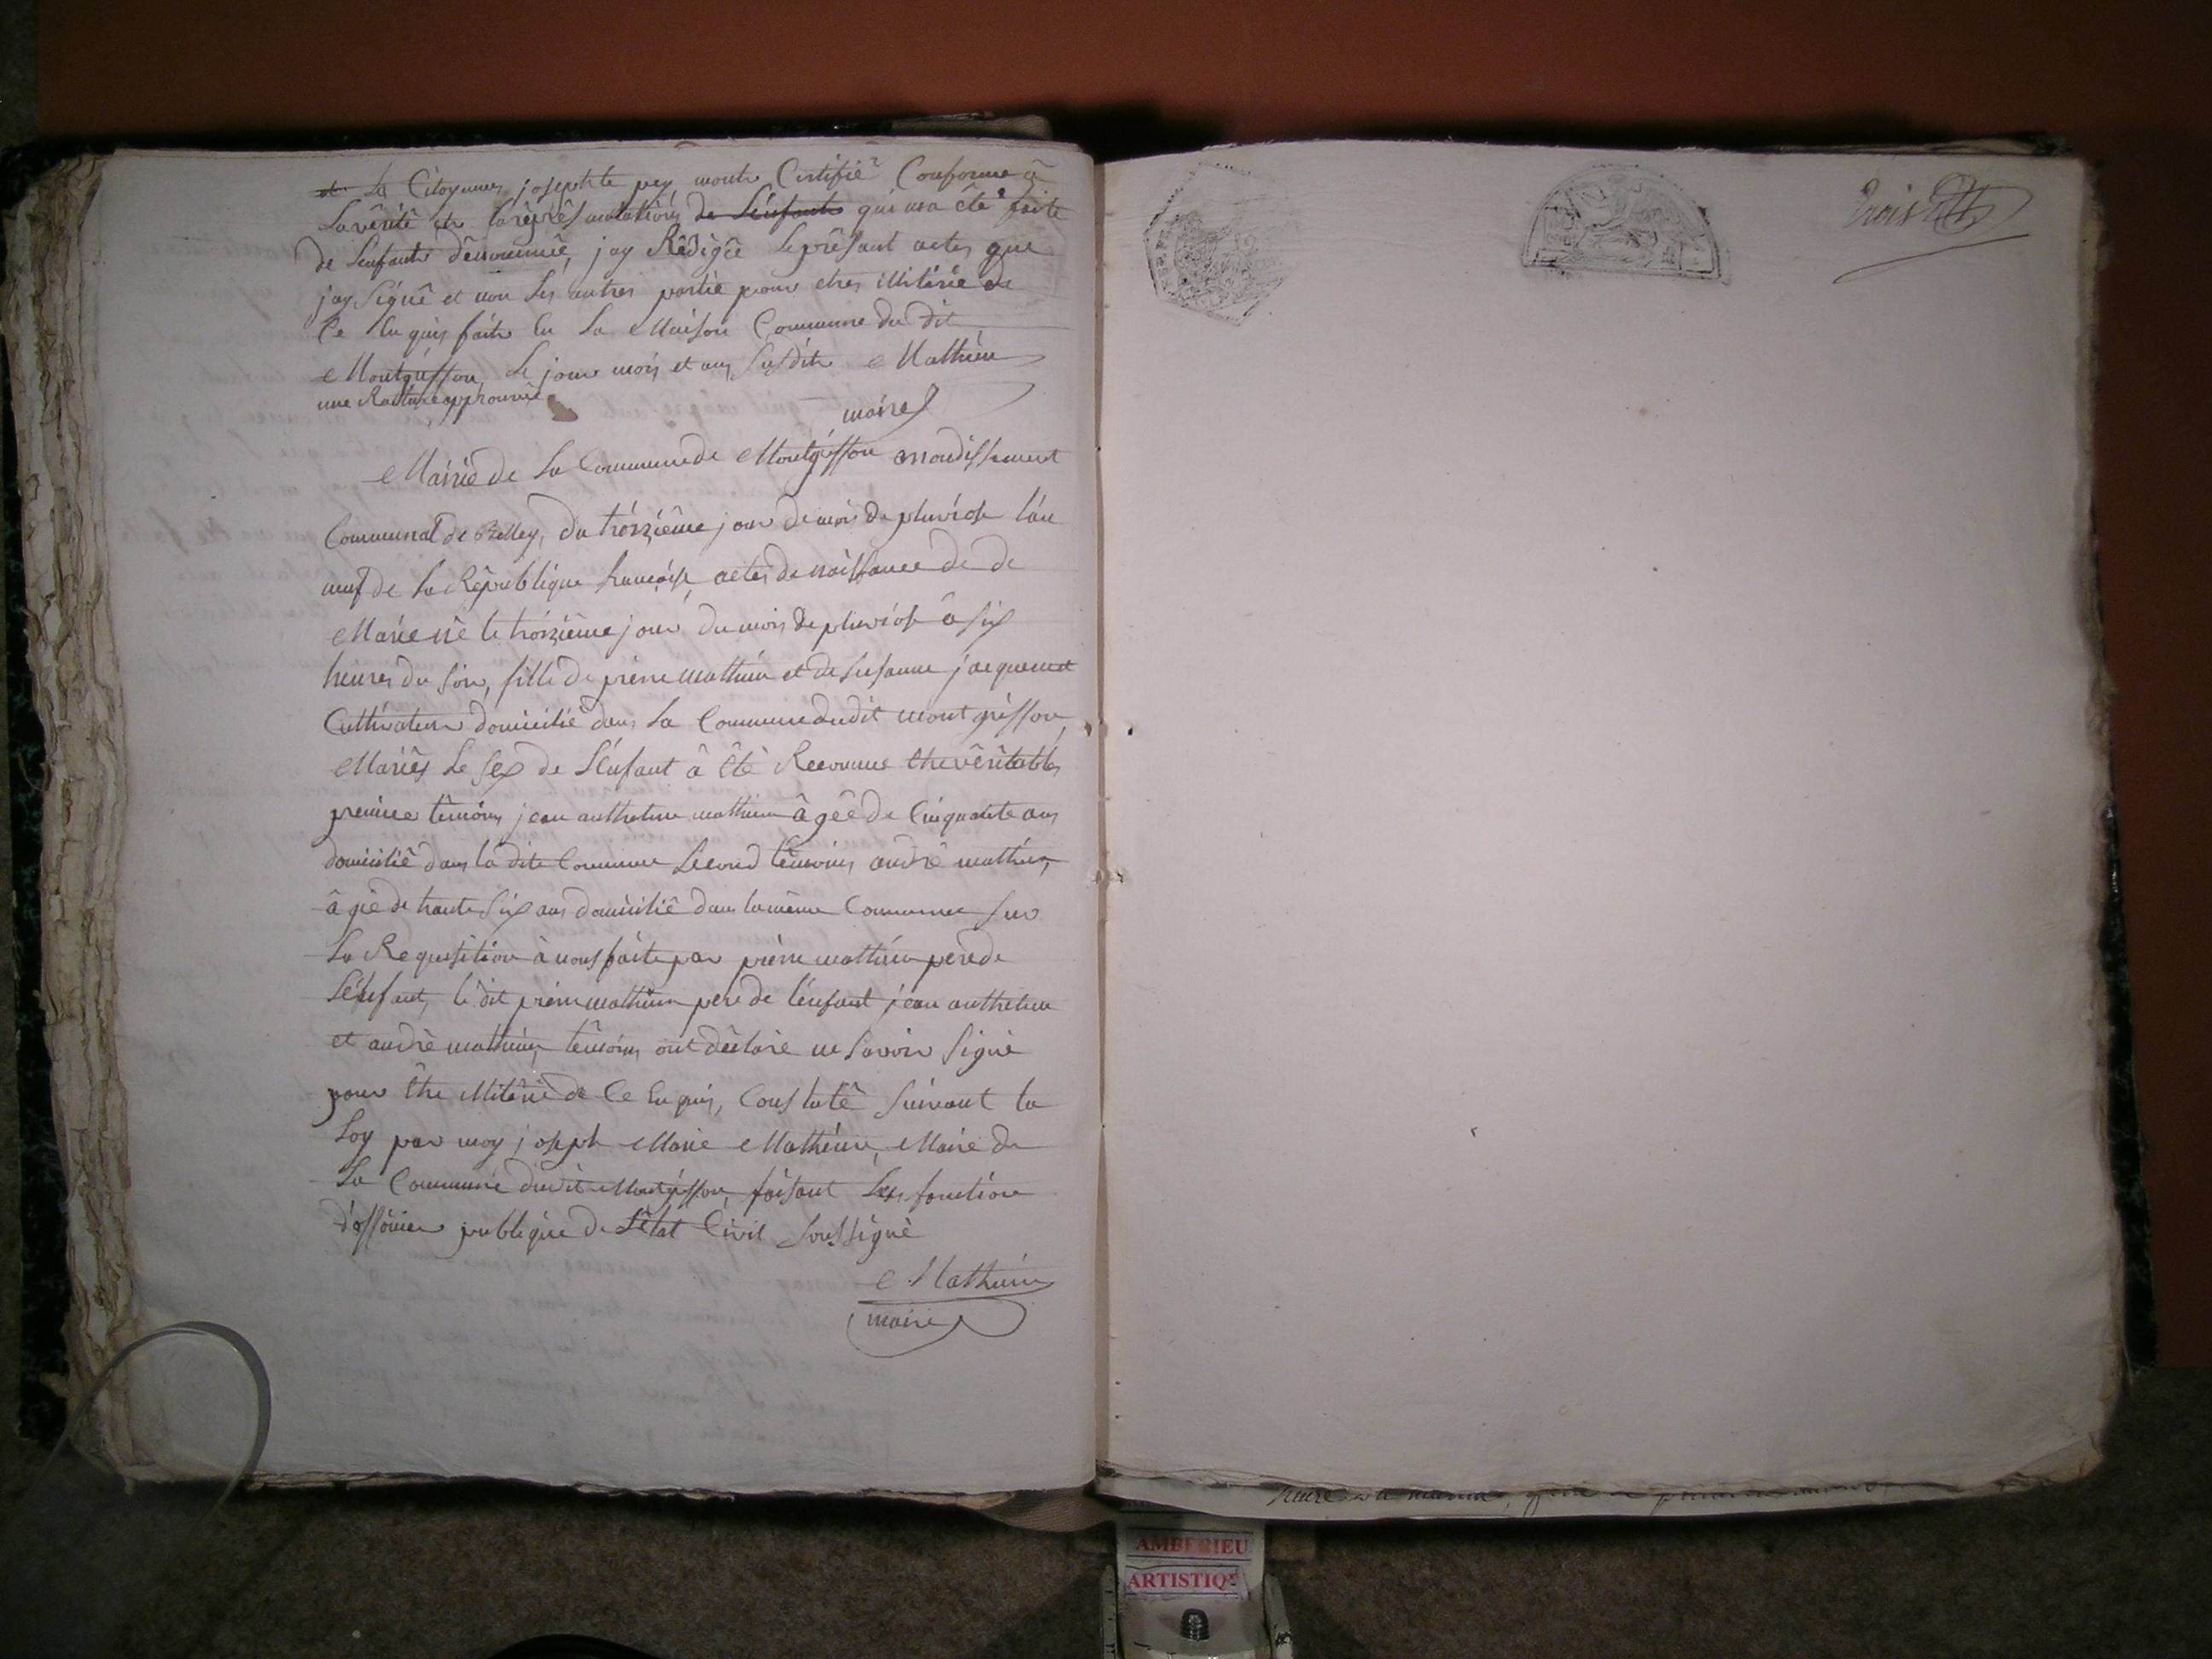 et La Citoyenne josephte pey montre Certifiê Conforme â
La vêritê et la rêprêsentatiôns de L'enfante qui ma êtê faite
de Lenfante dênommêe, jay Rêdigêe Le prêsent actes que
jay Signê et non Les autres partiê pour etres
Ce fait En La Maison Commune du dit
Montgriffon, Le jour mois et ans, Susdite Mathieu
une Rature approuvêe maire
Mairie de La Commune de Montgriffon arrondissement
Communal de Belley, du troiziême jour du mois de pluviose l'an
neuf de La Rêpublique francoise, actes de naissance de de
Marie nê le troiziême jour du mois de pluviose â six
heures du soir, fille de pierre mathieu et de Susanne jacquemet
Cultivateur domiciliê dans La Commune dudit montgriffon,
Mariês Le sex de L'enfant â êtê Reconnue
premier têmoins jean anthelme mathieu âgêe de Cinquante ans
domiciliê dans la dite Commune Second têmoins andrê mathieu,
âgêe de trante Six ans domiciliê dans la même Commune sur
La Requisition à nous faite par pierre mathieu pere de
L'enfant, le dit pierre mathieu pere de l'enfant jean anthelme
et andrê mathieu, têmoins ont dêclarê ne Savoir Signê
pour être de Ce Constatê Suivant la
Loy par moy joseph Marie Mathieu, Maire de
La Commune dudit Montgriffon, faisant Les fonction
d'officier publique de L'êtat Civil Soussignê
Mathieu
maire
AMBERIEU
ARTISTIQ